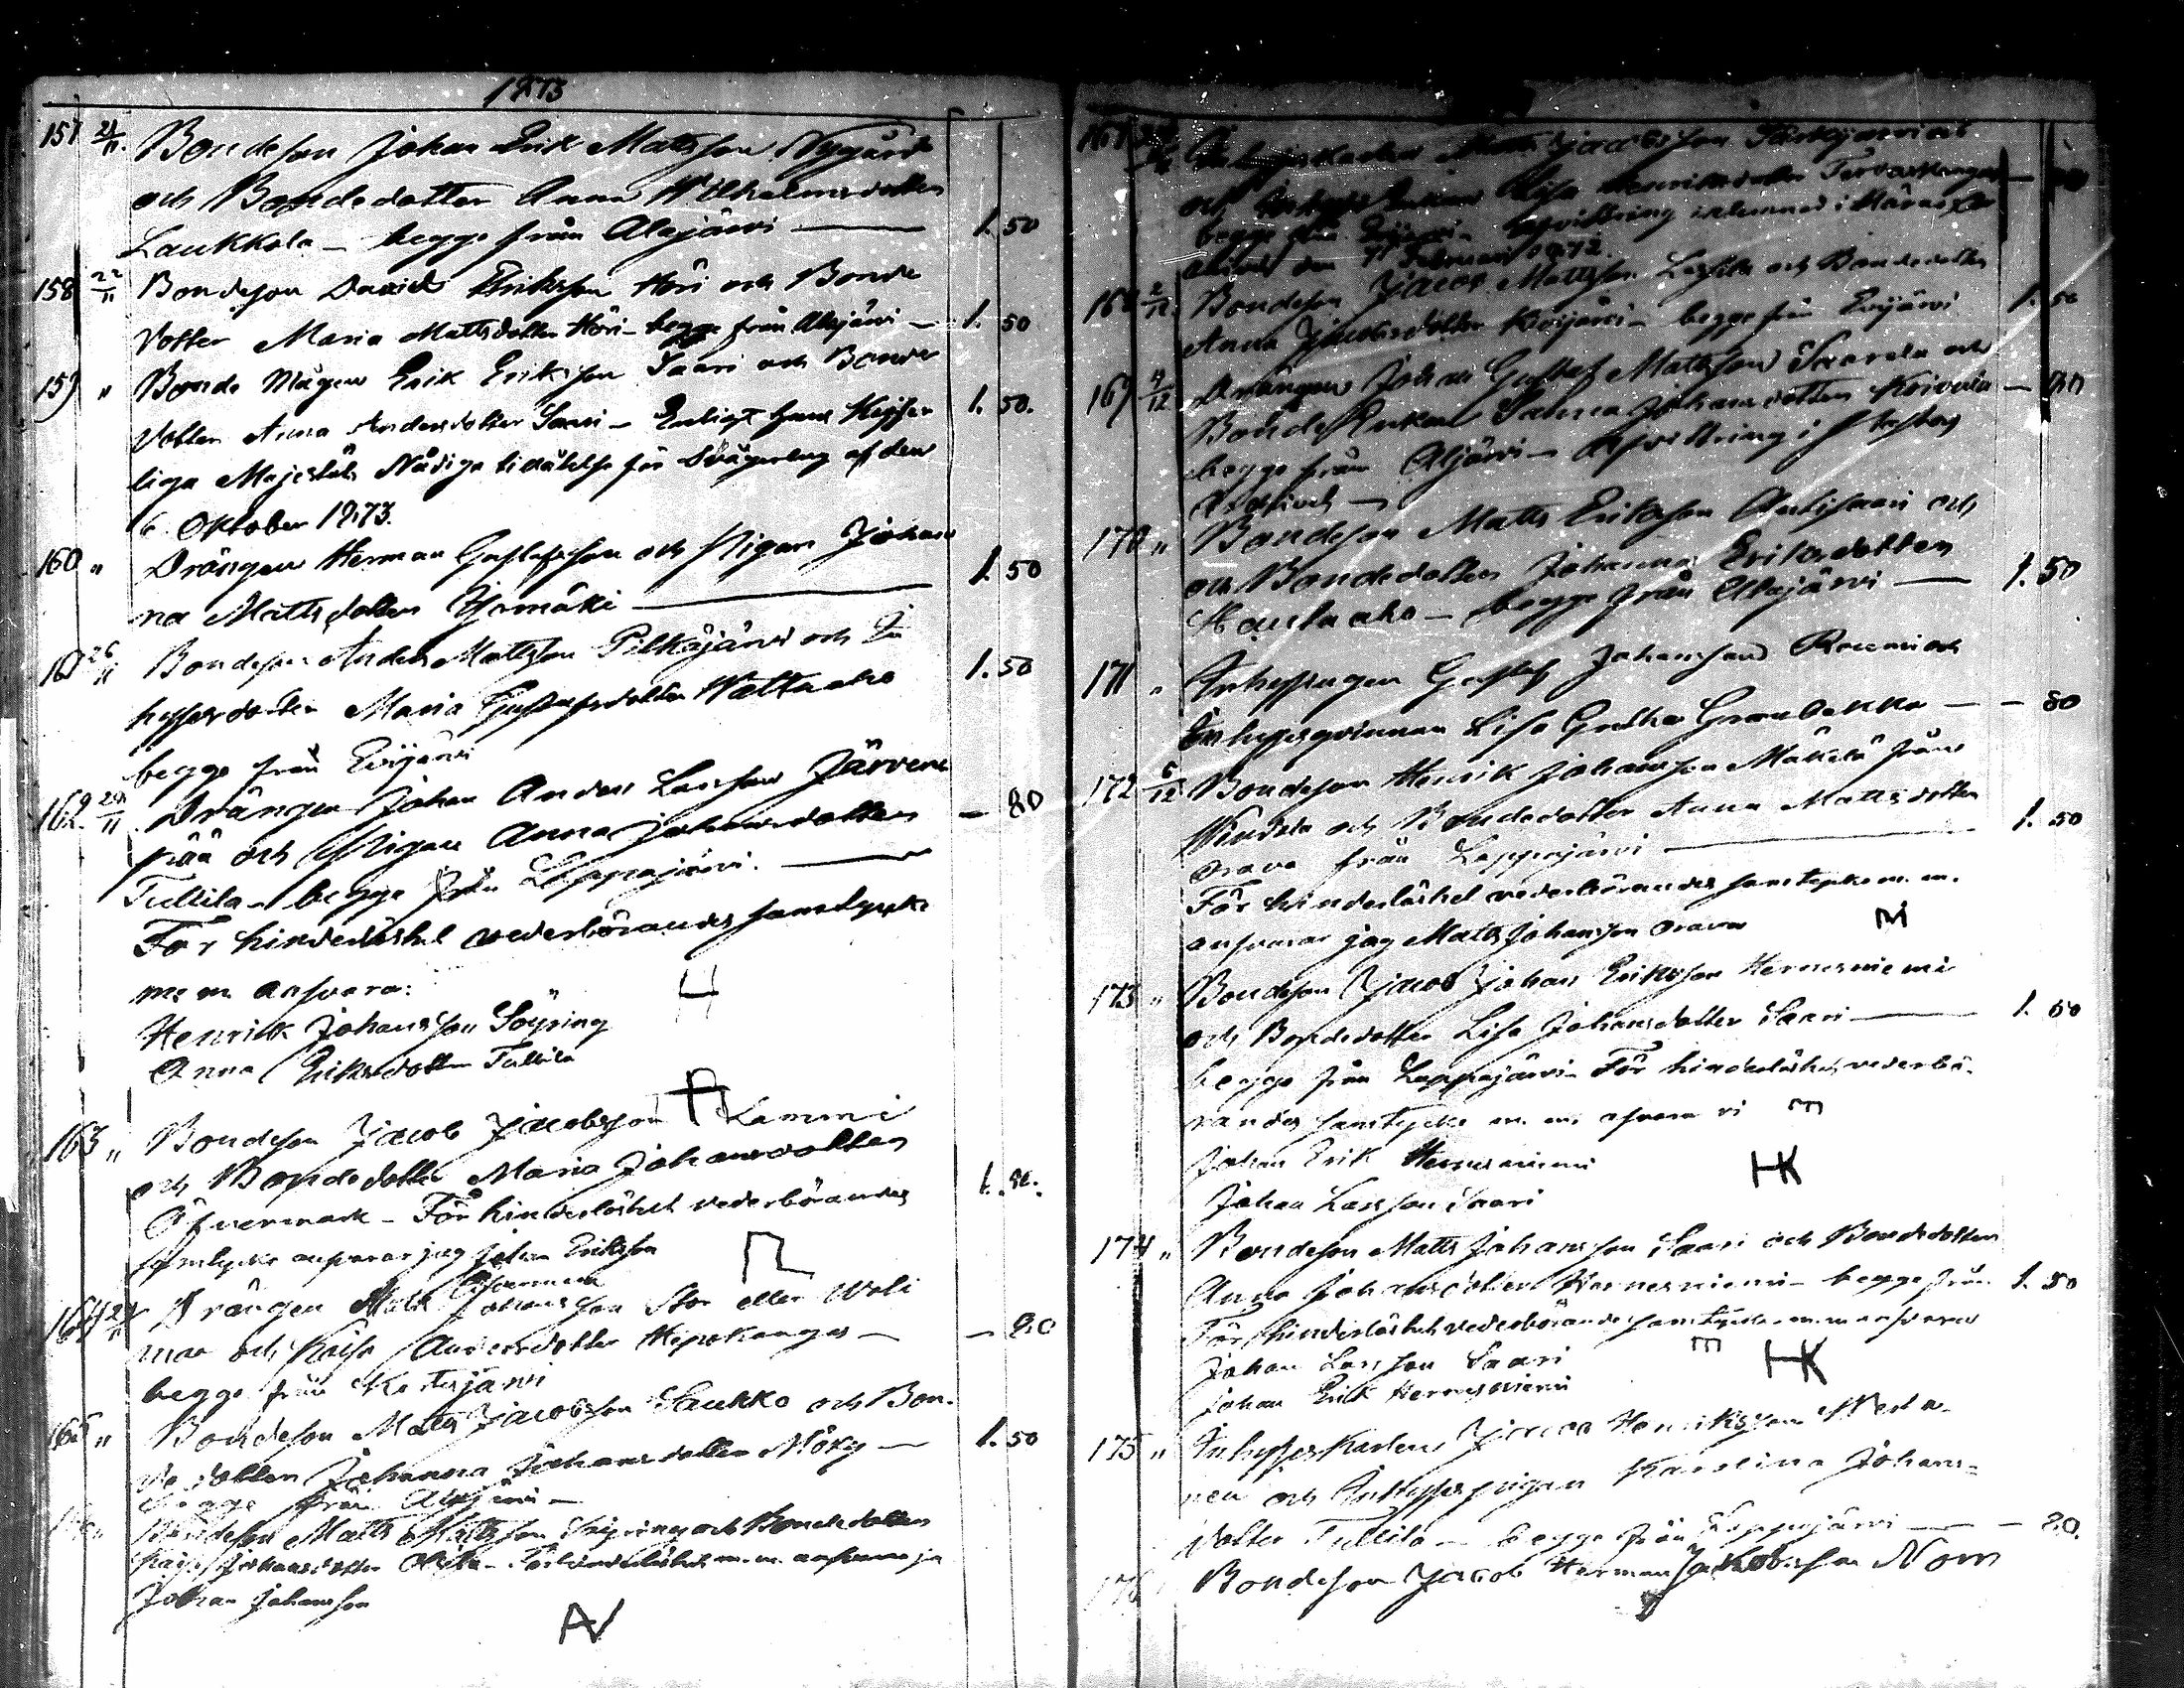 1873
157 21/11. Bondeson Johan Erik Mattsson Nygård
och Bondedotter Anna Wilhelmsdotter
Laukkola – begge från Alajärvi — 1. 50
158 22/11 Bondeson David Eriksson Höri och Bonde
dotter Maria Mattsdotter Höri – begge från Alajärvi — 1. 50
159 " Bonde Mågen Erik Eriksson Saari och Bonde
dotter Anna Andersdotter Saari – Enligt Hans Kejser 1. 50.
liga Majestäts Nådiga tillåtelse för Svågerlag af den
6. Oktober 1873.
160 " Drängen Herman Gustafsson och Pigan Johan
na Mattsdotter — 1. 50
161 26/11 Bondeson Anders Mattsson Pilkäjärvi och In
hysesdotter Maria Gustafsdotter Wattaaho 1. 50
begge från Evijärvi
162. 29/11 Drängen Johan Anders Larsson Järven
pää och Pigan Anna Johansdotter — 80
Tullila – begge från Lappajärvi. —
För hinderlöshet vederbörandes samtycke
m. m. ansvara:
Henrik Johansson Söyring H
Anna Eriksdotter Tullila
163 " Bondeson Jacob Jacobsson Kammi
och Bondedotter Maria Johansdotter
Öfvermark – För hinderlöshet vederbörandes 1. 50.
samtycke ansvarar jag Johan Eriksson
Öfvermark
164 29/11 Drängen Matts Johansson Stor eller Wali
maa och Kaisa Andersdotter Hepokangas — — 80
begge från Kortesjärvi
165 " Bondeson Matts Jacobsson Saukko och Bon-
de dotter Johanna Johansdotter Möky — 1. 50
begge från Alajärvi –
" Bondeson Matts Mattsson Söyring och Bondedotter
Kajsa Johansdotter – För hinderlöshet m. m. ansvarar jag
Johan Johansson
167 Inhyseskarlen Matts Jacobsson
och Lisa Henriksdotter Tervaskangas —
begge från Evijärvi – Afvittring inlemnad i Härads Ar
chivet den Februari 1872.
168 2/12 Bondeson Jacob Mattsson och Bondedotter
Anna Jacobsdotter Kivijärvi – begge från Evijärvi 1. 50
169 4/12 Drängen Johan Gustaf Mattsson Saarela och
Bonde Enkan Sanna Johansdotter Koivula — 80
begge från Alajärvi – Afvittring i Pastors
Archivet —
170 " Bondeson Matts Eriksson Antisaari och
och Bondedotter Johanna Eriksdotter
Hautaaho – begge från Alajärvi — 1. 50
171 " Inhysingen Gustaf Johansson Rauma och
Inhysesqvinnan Lisa Gretha Granbacka — — 80
172 5/12 Bondeson Henrik Johansson Mäkelä från
Windala och Bondedotter Anna Mattsdotter
Orava från Lappajärvi — 1. 50
För hinderlöshet vederbörandes samtycke m. m.
ansvarar jag Matts Johansson Orava
173 " Bondeson Jacob Johan Eriksson Hernesniemi
och Bondedotter Lisa Johansdotter Saari — 1. 50
begge från Lappajärvi – För hinderlöshet, vederbö-
randes samtycke m. m. ansvara vi
Johan Erik Hernesniemi
Johan Larsson Saari HK
174 " Bondeson Matts Johansson Saari och Bondedotter
Anna Johansdotter Hernesniemi – begge från 1. 50
För hinderlöshet vederbörandes samtycke m. m ansvara
Johan Larsson Saari
Johan Erik Hernesniemi HK
175 " Inhyseskarlen Jacob Henriksson Westa-
nen och Inhysespigan Karolina Johans-
dotter Tullila – begge från Lappajärvi — — 80.
176 Bondeson Jacob Herman Jakobsson Norr